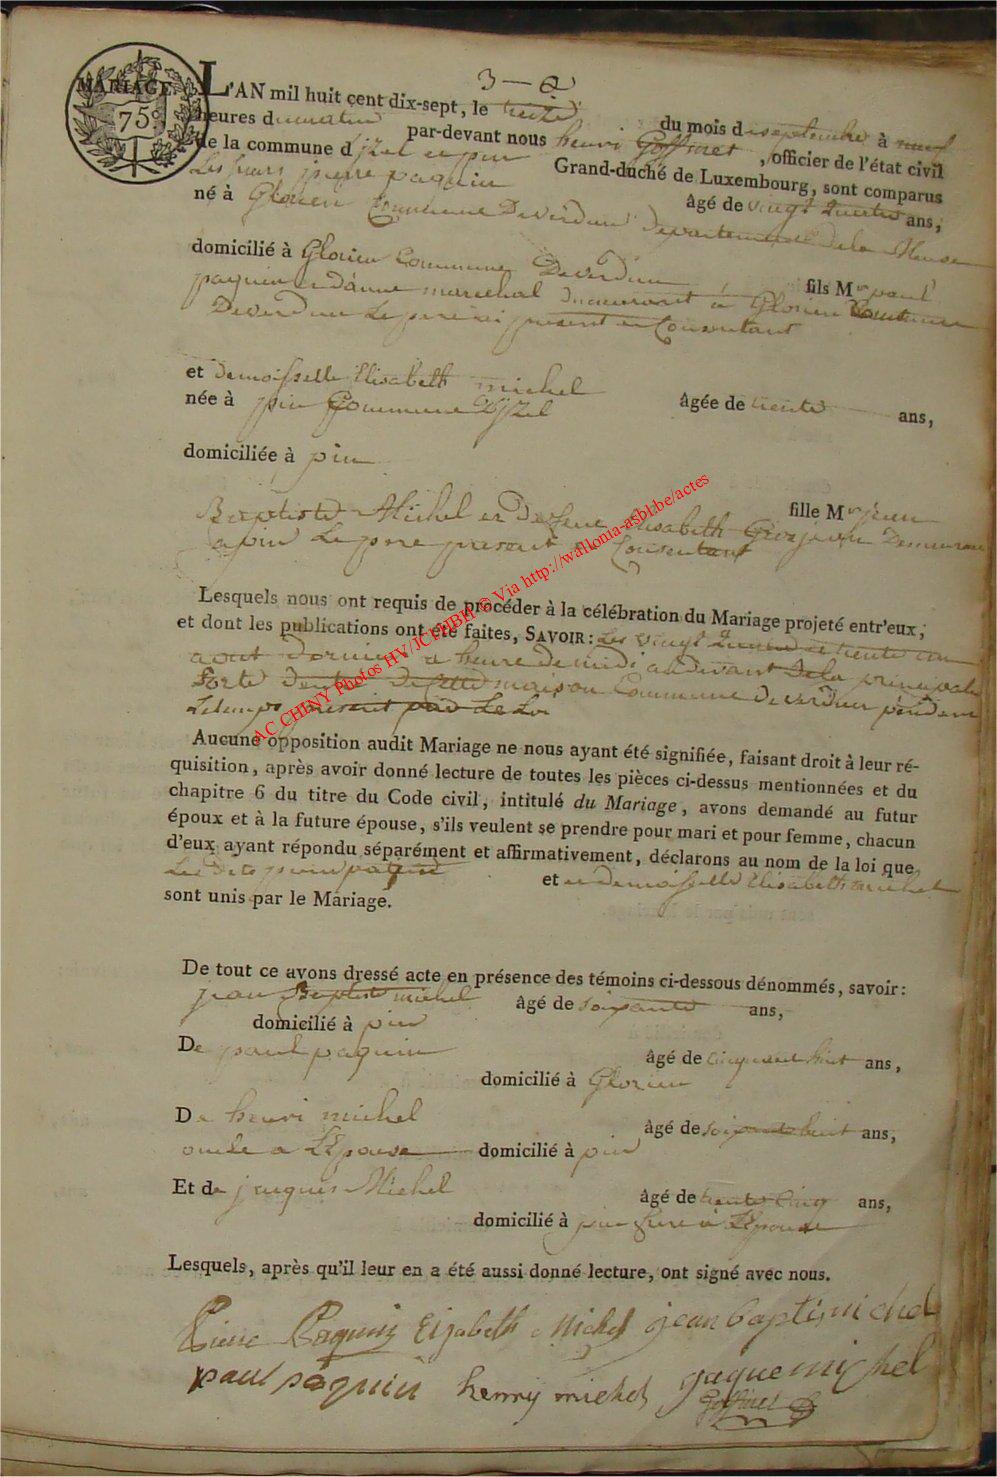 3 — a
MARIAGE.
75c
L'AN mil huit cent dix-sept, le treize du mois de septembre à neuf
heures du matin par-devant nous henri Goffinet, officier de l'état civil
de la commune d'jzel et pin Grand-duché de Luxembourg, sont comparus
Les sieurs pierre paquin âgé de vingt quatre ans,
né à Glorieu Commune De verdun departement de la Meuse
domicilié à Glorieu Commune De verdun fils Mr paul
paquin et d'anne marechal demeurant à Glorieu Commune
De verdun Le pere ici present et Consentant
et demoisselle Elisabeth michel âgée de trente ans,
née à pin Commune D'jzel
domiciliée à pin
fille Mr jean
Baptiste Michel et De Elisabeth Demeurant
a pin Le pere present et Consentant
Lesquels nous ont requis de procéder à la célébration du Mariage projeté entr'eux,
et dont les publications ont été faites, SAVOIR: Les vingt et trente un
aout dernier a heure de midi au devant De la principale
porte d'entrée De Cette maison Commune De verdun pendant
Le temps prescrit par La Loi
Aucune opposition audit Mariage ne nous ayant été signifiée, faisant droit à leur ré-
quisition, après avoir donné lecture de toutes les pièces ci-dessus mentionnées et du
chapitre 6 du titre du Code civil, intitulé du Mariage, avons demandé au futur
époux et à la future épouse, s'ils veulent se prendre pour mari et pour femme, chacun
d'eux ayant répondu séparément et affirmativement, déclarons au nom de la loi que
Les dits et demoisselle Elisabeth michel
sont unis par le Mariage.
De tout ce avons dressé acte en présence des témoins ci-dessous dénommés, savoir:
jean Baptiste michel âgé de soixante ans,
domicilié à pin
De paul paquin âgé de Cinquante huit ans,
domicilié à Glorieu
De henri michel âgé de soixante huit ans,
oncle a L'Epouse domicilié à pin
Et de jacques Michel âgé de trente Cinq ans,
domicilié à pin frere à L'Epouse
Lesquels, après qu'il leur en a été aussi donné lecture, ont signé avec nous.
Pierre Paquin Elisabeth Michel jean baptis michel
paul paquin henry michel jaque michel
Goffinet
AC CHINY Photos HV/JCH/JBH © Via http://wallonia-asbl.be/actes